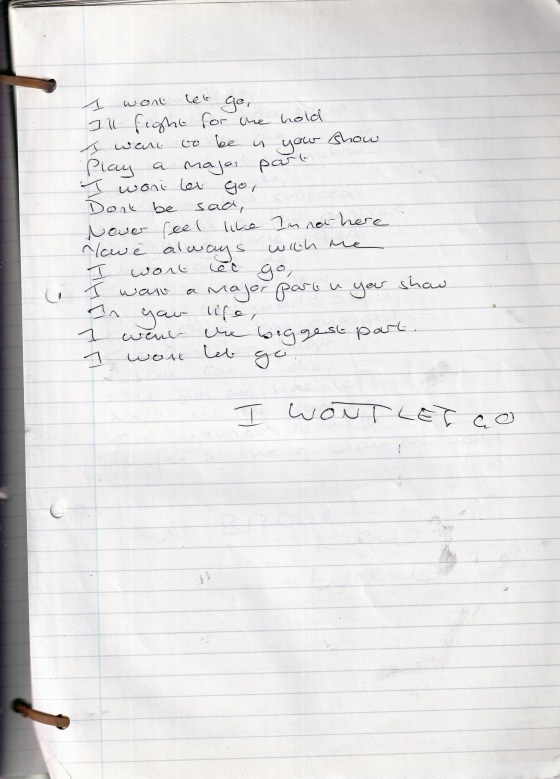 I wont let go,
Ill fight for the hold
I want to be in your show
Play a major part
I wont let go,
Dont be sad,
Never feel like Im not here
Your always with me
I wont let go,
I want a major part in your show
In your life,
I want the biggest part.
I wont let go.
I WONT LET GO